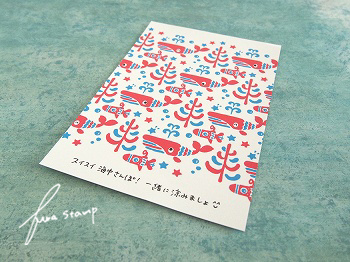 スイスイ 海中さんぽ! 一緒に涼みましょ
fuwa stamp